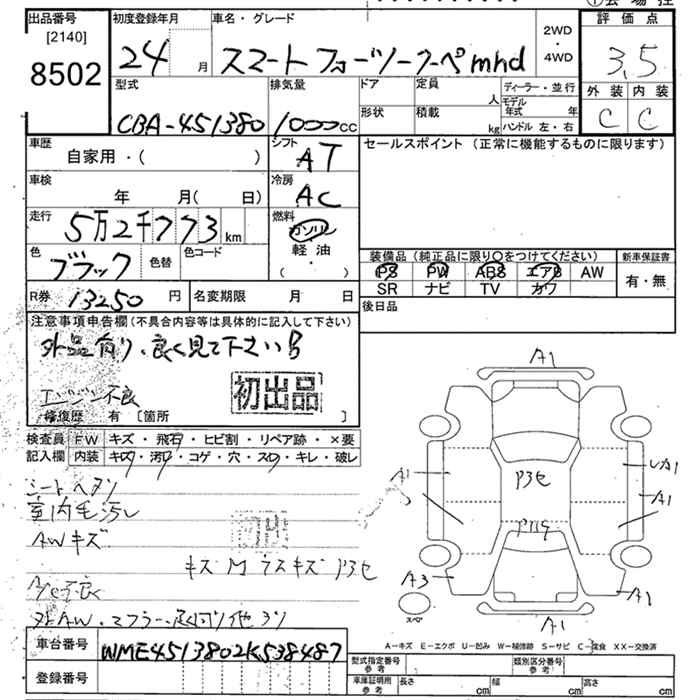 出品番号 初度登録年月 車名・グレード 2WD・4WD 評価点
[2140]
8502
24 月 スマート フォーツークーペ mhd
3.5
外装 内装
C C
型式 排気量 ドア 定員 人 ディーラー・並行
CBA-451380 1000cc
形状 積載 kg モデル年式 年
ハンドル 左・右
車歴 自家用・( ) シフト AT セールスポイント (正常に機能するものに限ります)
車検 年 月( 日) 冷房 AC
走行 5万2千773km 燃料 ガソリン 軽油・( )
色 ブラック 色替 色コード
装備品 (純正品に限り〇をつけてください) 新車保証書
PS PW ABS エアB AW 有・無
SR ナビ TV カワ
R券 13250円 名変期限 月 日
後日品
注意事項申告欄(不具合内容等は具体的に記入して下さい)
外品有り、良く見て下さい
初出品
エンジン不良
修復歴 有 [箇所 ]
検査員記入欄 FW キズ・飛石・ヒビ割・リペア跡・×要
内装 キズ・汚・コゲ・穴・スレ・キレ・破レ
シートヘタリ
室内毛汚レ
AWキズ
キズ
A/C不良
外AW、マフラー
車台番号 WME4513802K538487
登録番号
A1
A1
A1
A1
A3
A1
A1
スペア
A-キズ E-エクボ U-凹み W-補修跡 S-サビ C-腐食 XX-交換済
型式指定番号 参考 類別区分番号 参考
車庫証明用 参考 長さ cm 幅 cm 高さ cm